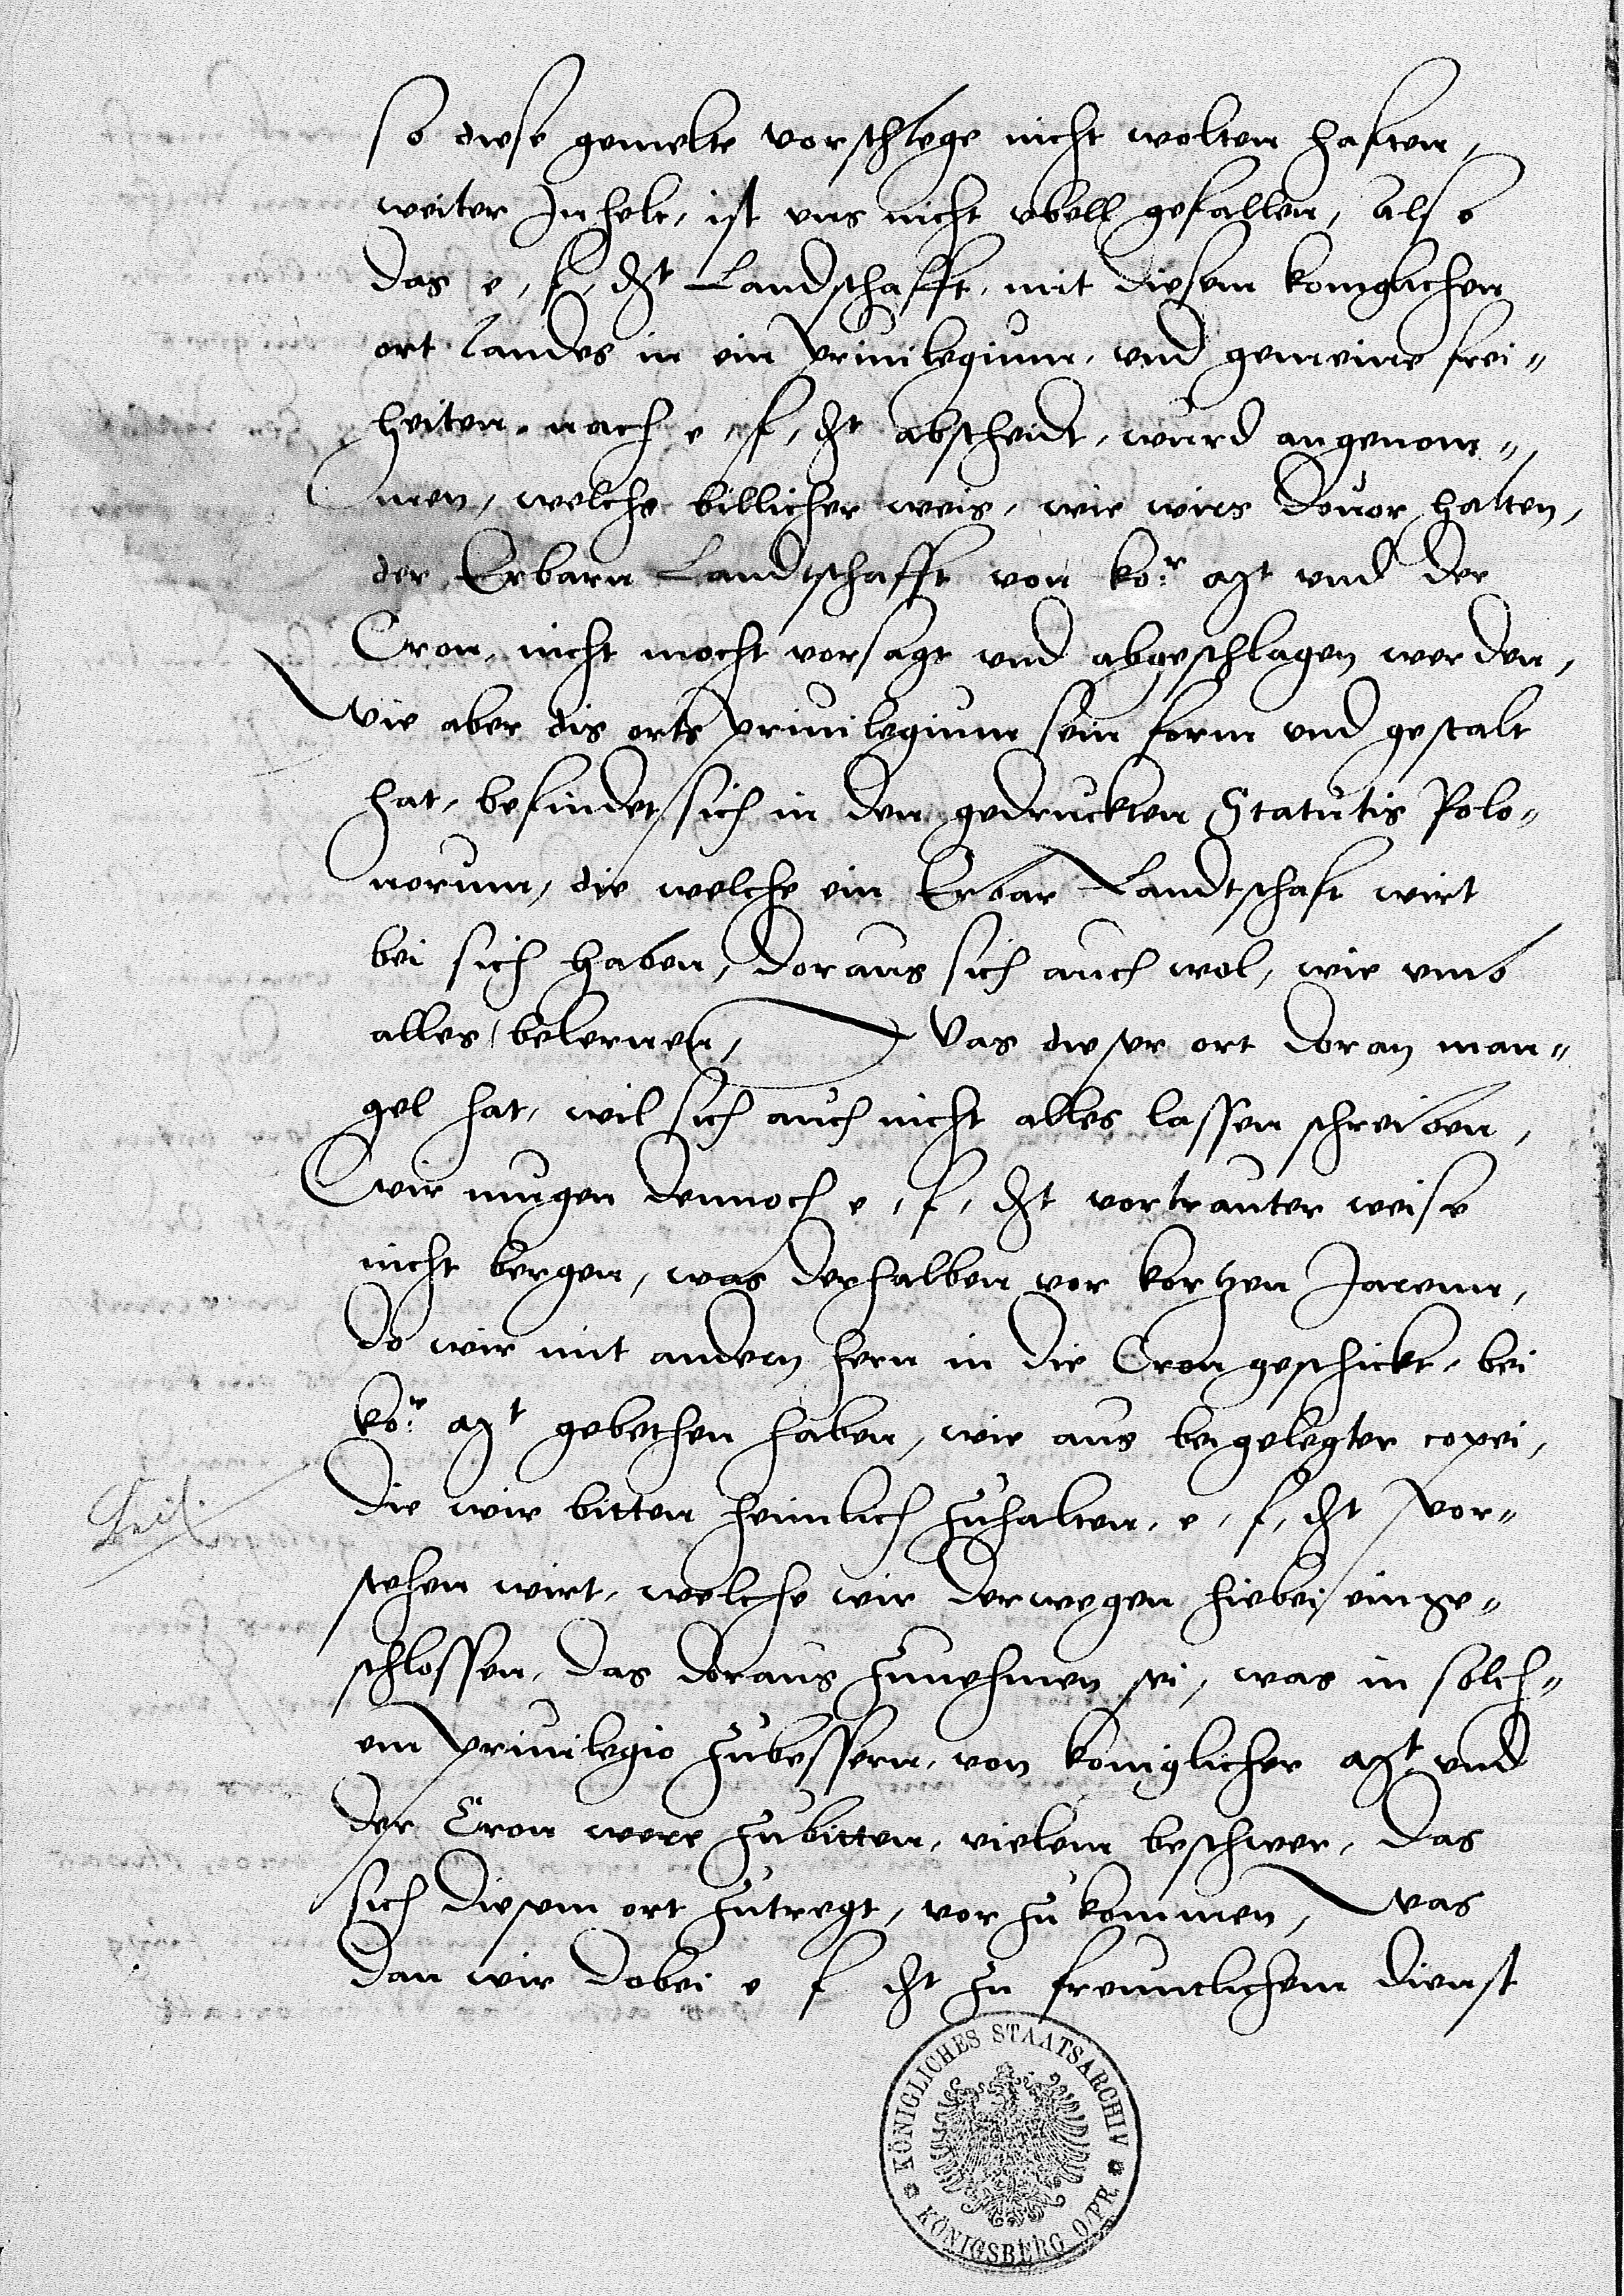 so diese gemelte vorschlege nicht wolten haften,
weiter Inhelt, ist vns nicht vbell gefallen, also
das e, f, dt Landschafft, mit diesem koniglichen
ort landes in ein priuilegium, vnd gemeine frei-
heiten, nach e, f, dt abscheidt, wurd angenom-
men, welchs billicher weis, wie wirs douor halten,
der Erbarn Landtschafft von ko:r mt vnd der
Cron, nicht mocht vorsagt vnd abgeschlagen werden,
Wie aber dis orts priuilegium sein form vnd gestalt
hat, befindet sich in den gedruckten Statutis Polo-
norum, die welche ein Erbar Landtschaft wirt
bei sich haben, doraus sich auch wol, wie vmb
alles, belernen, Was dieser ort doran man-
gel hat, wil sich auch nicht alles lassen schreiben,
Wir mugen dennoch e, f, dt vortrauter weise
nicht bergen, was derhalben vor kortzen Jarenn,
do wir mit andern hern in die Cron geschickt, bei
ko:r mt gebethen haben, wie aus beigelegter copei,
die wir bitten heimlich zuhalten, e, f, dt vor-
stehen wirt, welche wir derwegen hiebei einge-
schlossen, das doraus zunehmen sei, was in solch-
em priuilegio zubessern, von koniglicher mt vnd
der Cron were zubitten, vielem beschwer, das
sich diesem ort zutregt, vor zu kommen, Was
dan wir dobei e f dt zu freuntlichem dienst
KÖNIGLICHES STAATSARCHIV
KÖNIGSBERG O/PR.